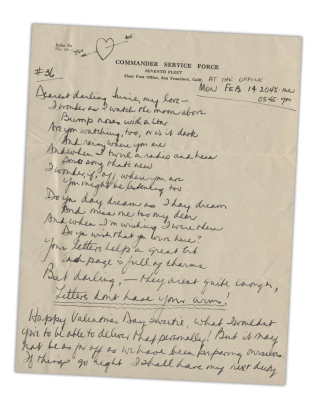 Refer To
File No.
COMMANDER SERVICE FORCE
SEVENTH FLEET
Fleet Post Office, San Francisco, Calif.
AT THE OFFICE
#36
MON FEB 14 2045
0545
Dearest darling, my love—
I wonder as I watch the moon above
Bump noses with a star
Are you watching, too, or is it dark
And rainy where you are
And when I twirl a radio and hear
Some song that's new
I wonder, if, off where you are
You might be listening too.
Do you day dream as I day dream
And miss me too my dear
And when I'm wishing I were there
Do you wish that you were here?
Your letters help a great bit
Each page is full of charms
But darling, — they aren't quite enough,
Letters don't have your arms!
Happy Valentines Day Sweetie, what I wouldn't
give to be able to deliver that personally! But it may
not be so far off as we have been preparing ourselves
If things go right I shall have my next duty